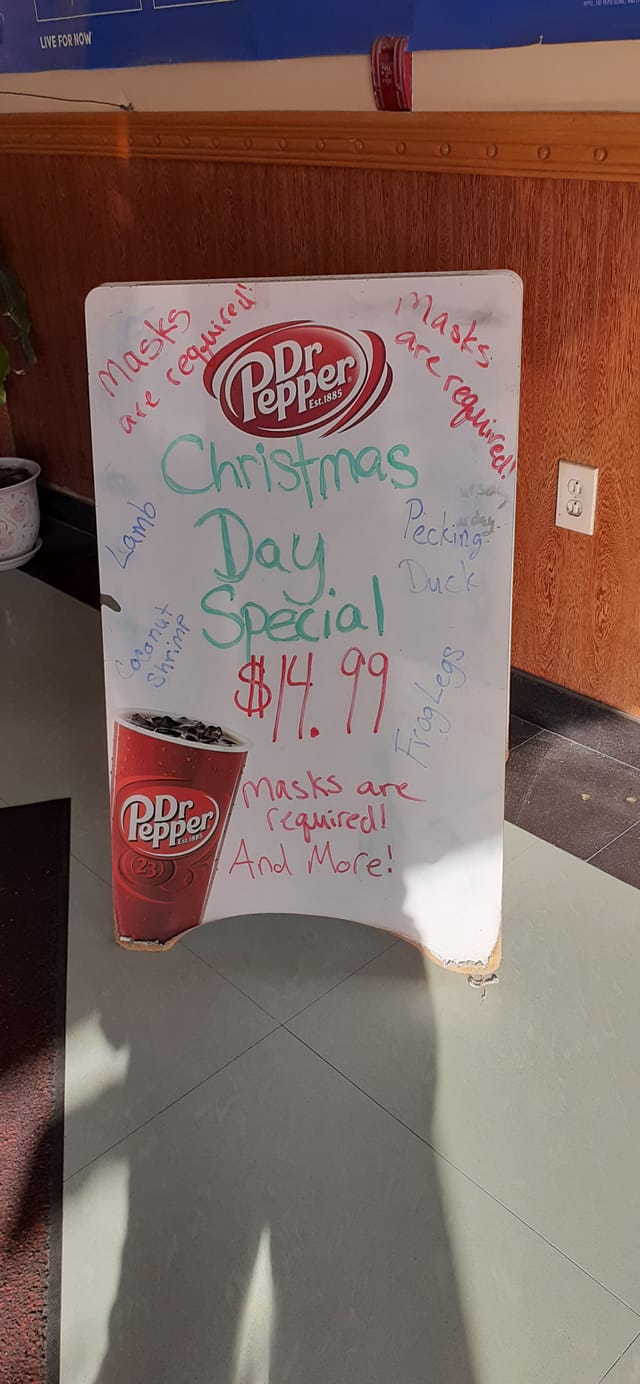 LIVE FOR NOW
Masks
are required!
Masks
are required!
Dr
Pepper
Est.1885
Christmas
Day
Special
$14.99
Lamb
Pecking
Duck
Coconut
Shrimp
Frog Legs
Masks are
required!
And More!
Dr
Pepper
Est.1885
23